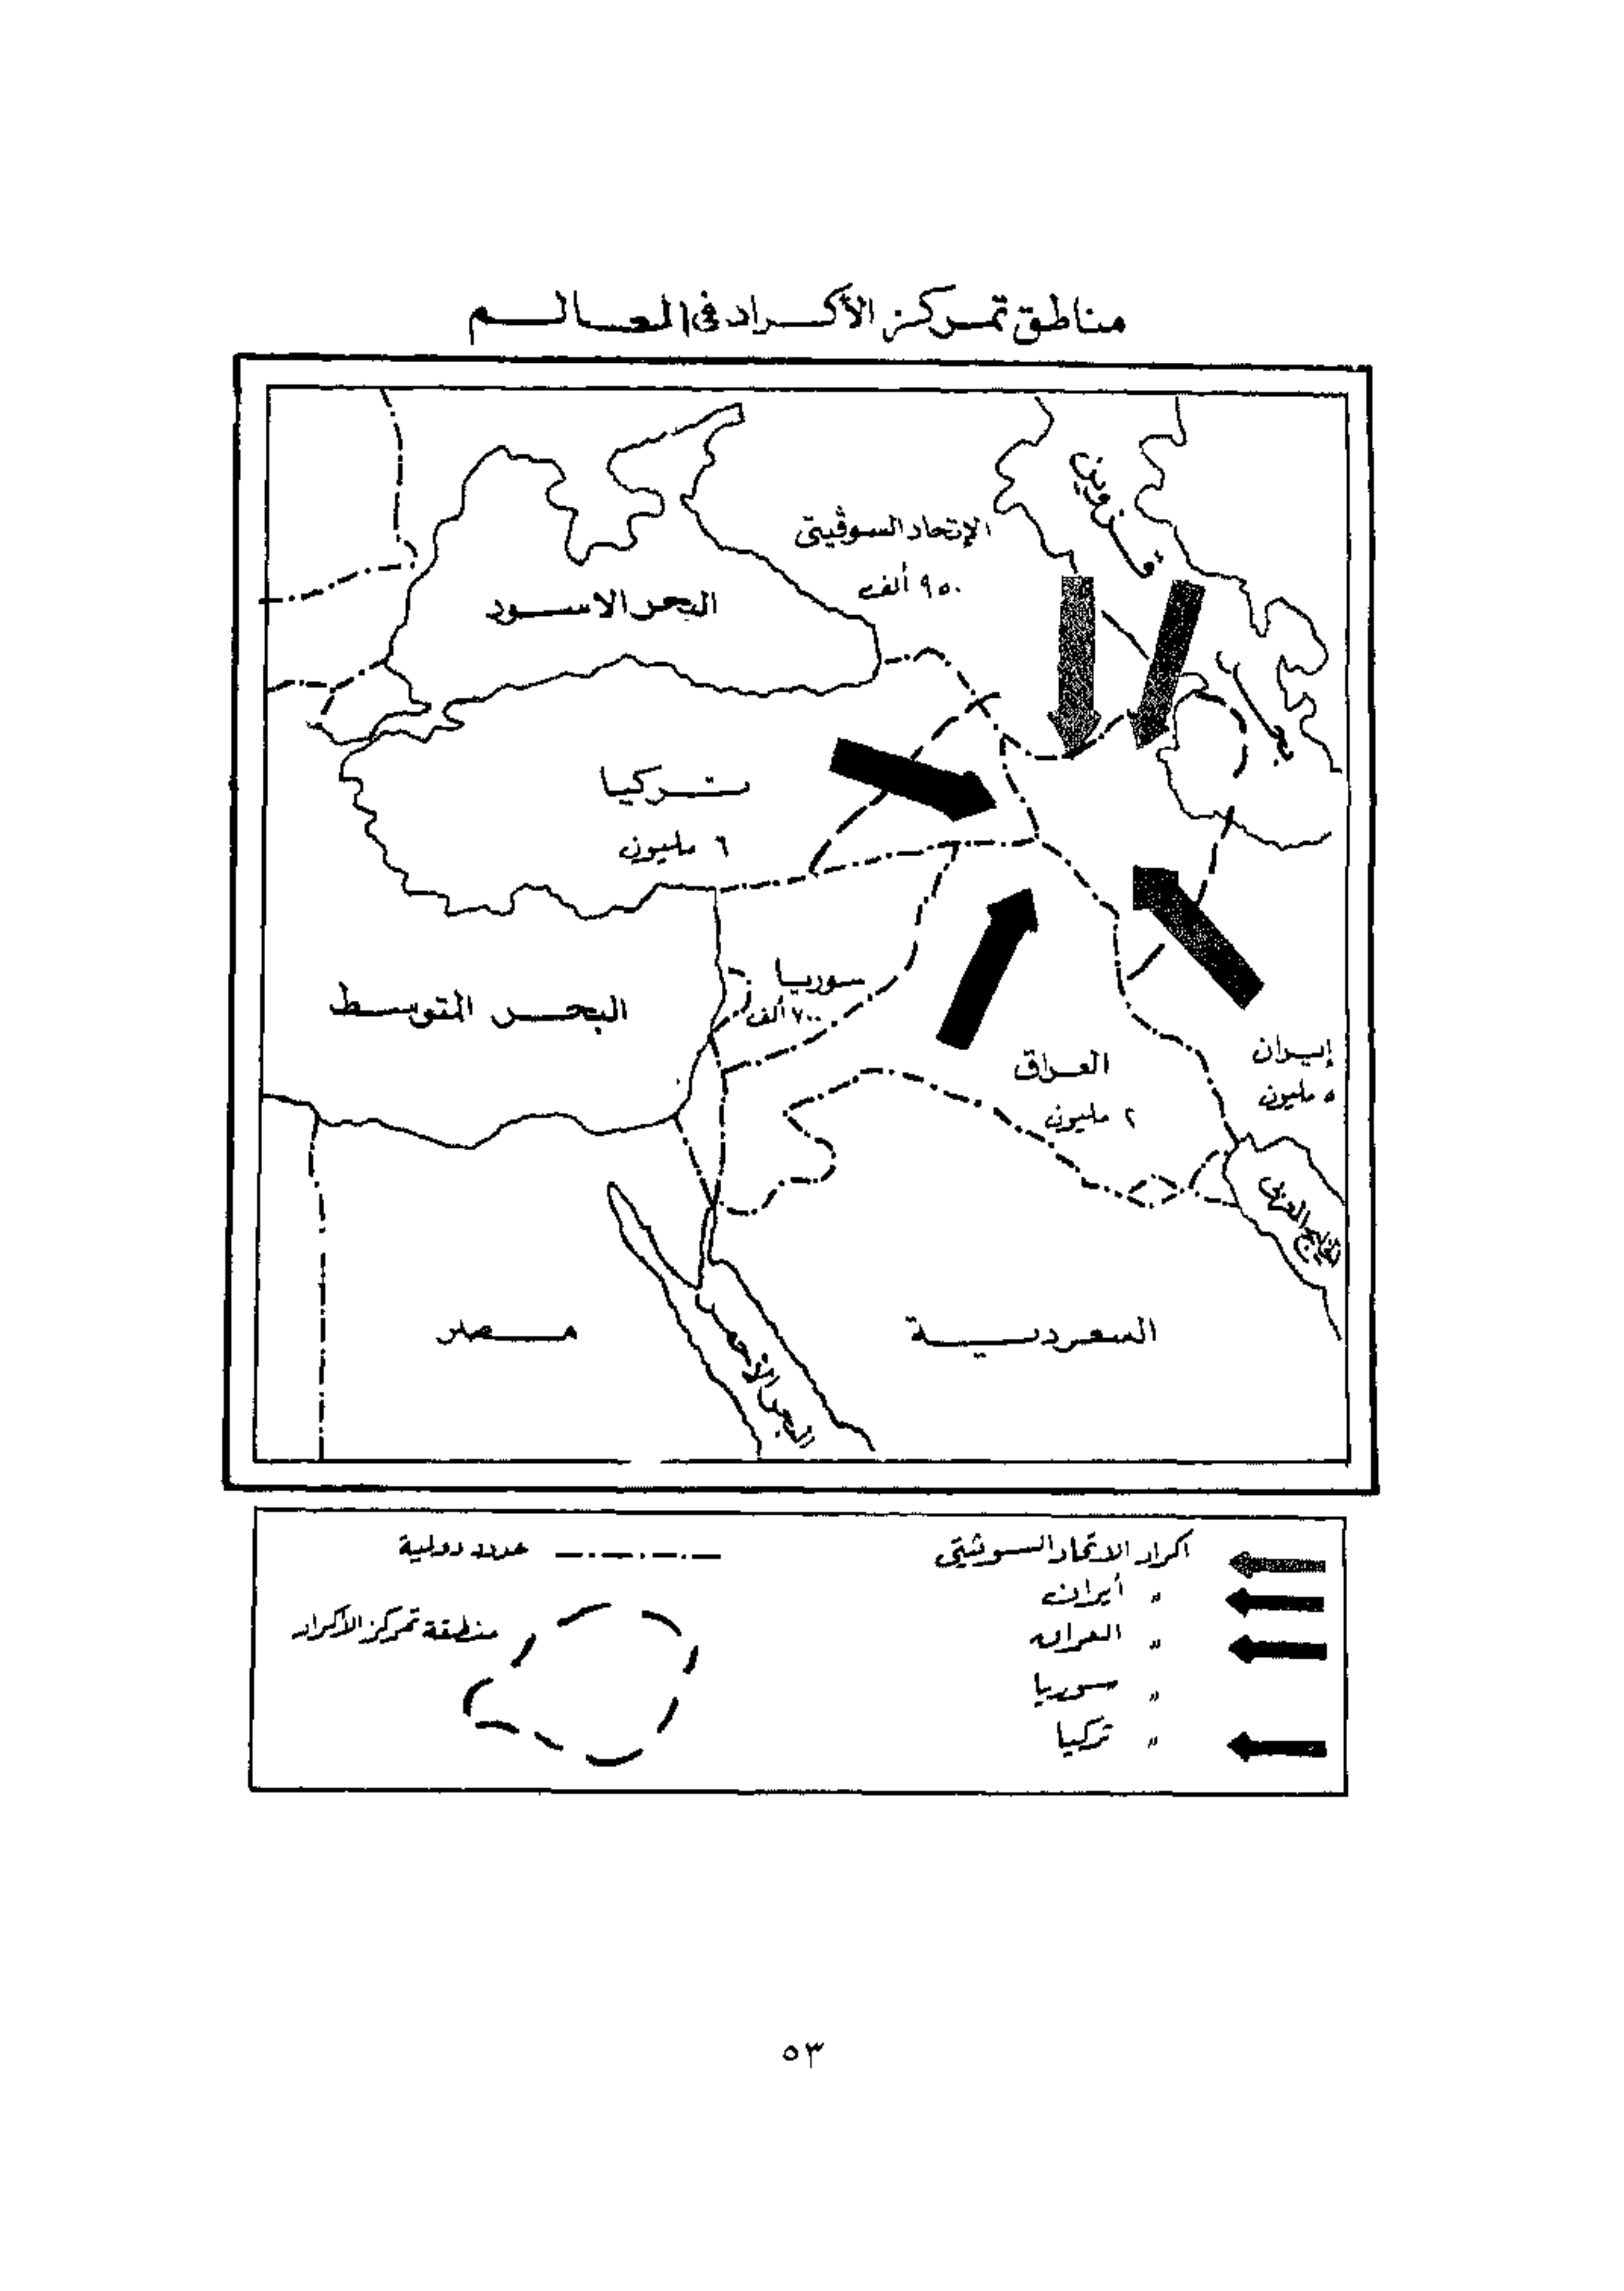 مناطق تمركز الأكراد في العالم
بحر قزوين
الإتحاد السوڤيتى
٩٥٠ ألف
البحر الاسود
تركيا
٦ مليون
سوريا
البحر المتوسط
العراق
٢ مليون
إيران
٥ مليون
الخليج العربى
مصر
السعودية
البحر الأحمر
اكراد الاتحاد السوڤيتى
" أيران
" العراق
" سوريا
" تركيا
حدود دولية
منطقة تمركز الأكراد
٥٣